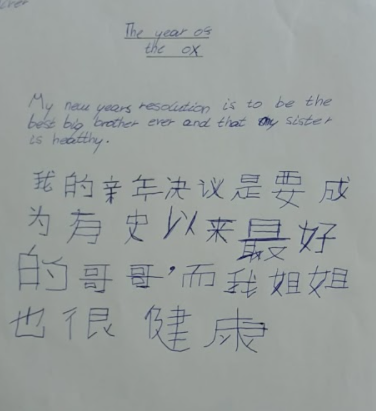 The year of
the ox
My new years resolution is to be the
best big brother ever and that my sister
is healthy.
我的辛年决议是要成
为有史以来最好
的哥哥,而我姐姐
也很健康